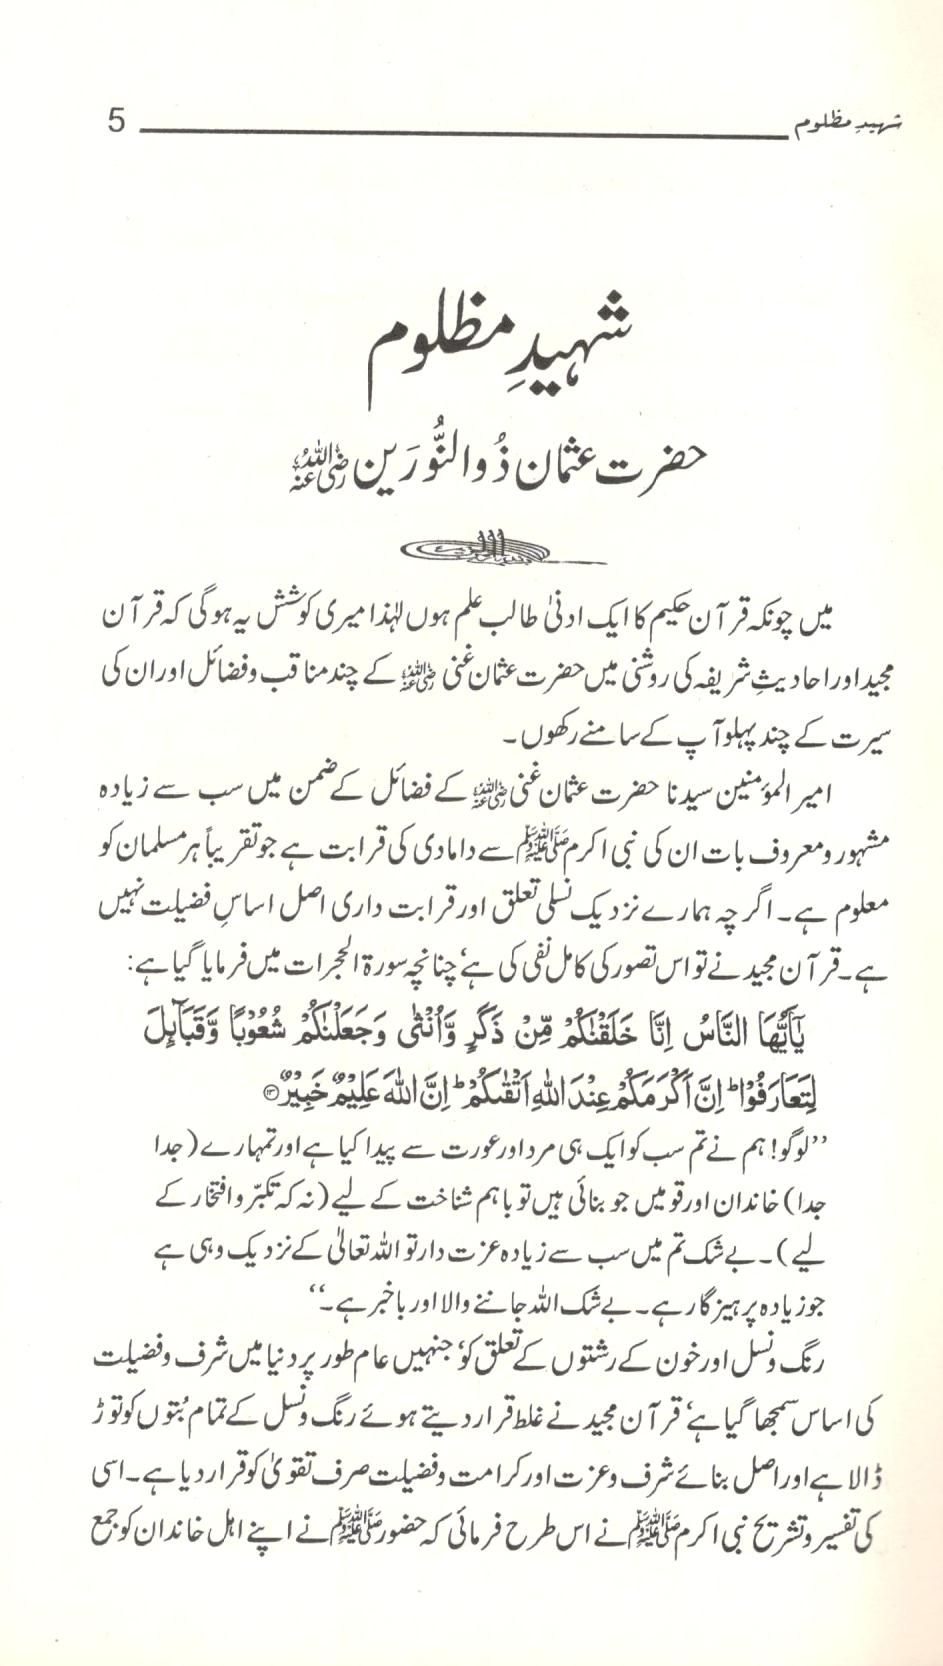 شہیدِ مظلوم 5
شہیدِ مظلوم
حضرت عثمان ذُو النُّورَین رضی اللہ عنہ
میں چونکہ قرآن حکیم کا ایک ادنیٰ طالب علم ہوں لہٰذا میری کوشش یہ ہوگی کہ قرآن
مجید اور احادیثِ شریفہ کی روشنی میں حضرت عثمان غنی رضی اللہ عنہ کے چند مناقب و فضائل اور ان کی
سیرت کے چند پہلو آپ کے سامنے رکھوں۔
امیر المؤمنین سیدنا حضرت عثمان غنی رضی اللہ عنہ کے فضائل کے ضمن میں سب سے زیادہ
مشہور و معروف بات ان کی نبی اکرم ﷺ سے دامادی کی قرابت ہے جو تقریباً ہر مسلمان کو
معلوم ہے۔ اگرچہ ہمارے نزدیک نسلی تعلق اور قرابت داری اصل اساسِ فضیلت نہیں
ہے۔ قرآن مجید نے تو اس تصور کی کامل نفی کی ہے‘ چنانچہ سورۃ الحجرات میں فرمایا گیا ہے:
یٰۤاَیُّهَا النَّاسُ اِنَّا خَلَقْنٰكُمْ مِّنْ ذَكَرٍ وَّاُنْثٰى وَجَعَلْنٰكُمْ شُعُوْبًا وَّقَبَآئِلَ
لِتَعَارَفُوْا ؕ اِنَّ اَكْرَمَكُمْ عِنْدَ اللّٰهِ اَتْقٰىكُمْ ؕ اِنَّ اللّٰهَ عَلِیْمٌ خَبِیْرٌ ﴿۱۳﴾
’’لوگو! ہم نے تم سب کو ایک ہی مرد اور عورت سے پیدا کیا ہے اور تمہارے (جدا
جدا) خاندان اور قومیں جو بنائی ہیں تو باہم شناخت کے لیے (نہ کہ تکبّر و افتخار کے
لیے)۔ بے شک تم میں سب سے زیادہ عزت دار تو اللہ تعالیٰ کے نزدیک وہی ہے
جو زیادہ پرہیزگار ہے۔ بے شک اللہ جاننے والا اور باخبر ہے۔‘‘
رنگ و نسل اور خون کے رشتوں کے تعلق کو‘ جنہیں عام طور پر دنیا میں شرف و فضیلت
کی اساس سمجھا گیا ہے‘ قرآن مجید نے غلط قرار دیتے ہوئے رنگ و نسل کے تمام بُتوں کو توڑ
ڈالا ہے اور اصل بنائے شرف و عزت اور کرامت و فضیلت صرف تقویٰ کو قرار دیا ہے۔ اسی
کی تفسیر و تشریح نبی اکرم ﷺ نے اس طرح فرمائی کہ حضور ﷺ نے اپنے اہل خاندان کو جمع